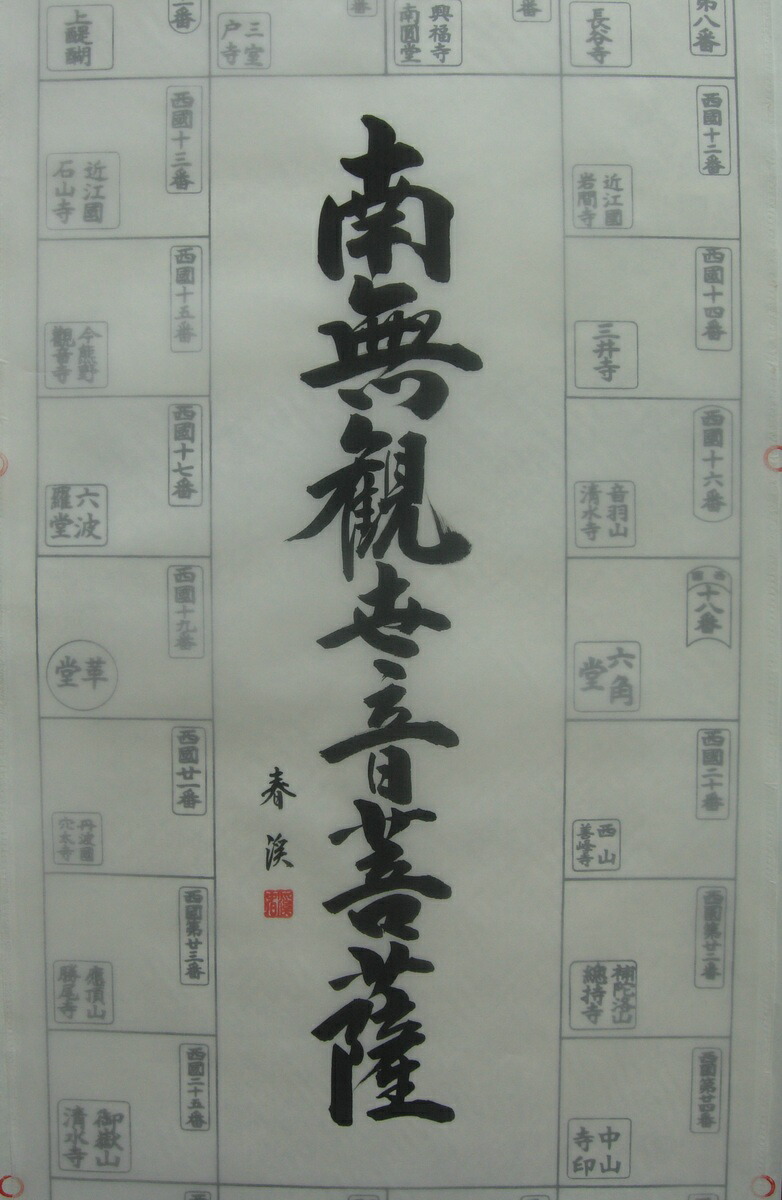 南無観世音菩薩
春渓
第八番
長谷寺
番
興福寺
南圓堂
番
三室
户寺
番
上醍醐
西國十二番
近江國
岩間寺
西國十三番
近江國
石山寺
西國十四番
三井寺
西國十五番
今熊野
觀音寺
西國十六番
音羽山
清水寺
西國十七番
六波
羅堂
西國
十八番
六角
堂
西國十九番
革
堂
西國二十番
西山
善峰寺
西國廿一番
丹波國
穴太寺
西國第廿二番
補陀洛山
總持寺
西國第廿三番
應頂山
勝尾寺
西國第廿四番
中山
寺印
西國二十五番
御嶽山
清水寺